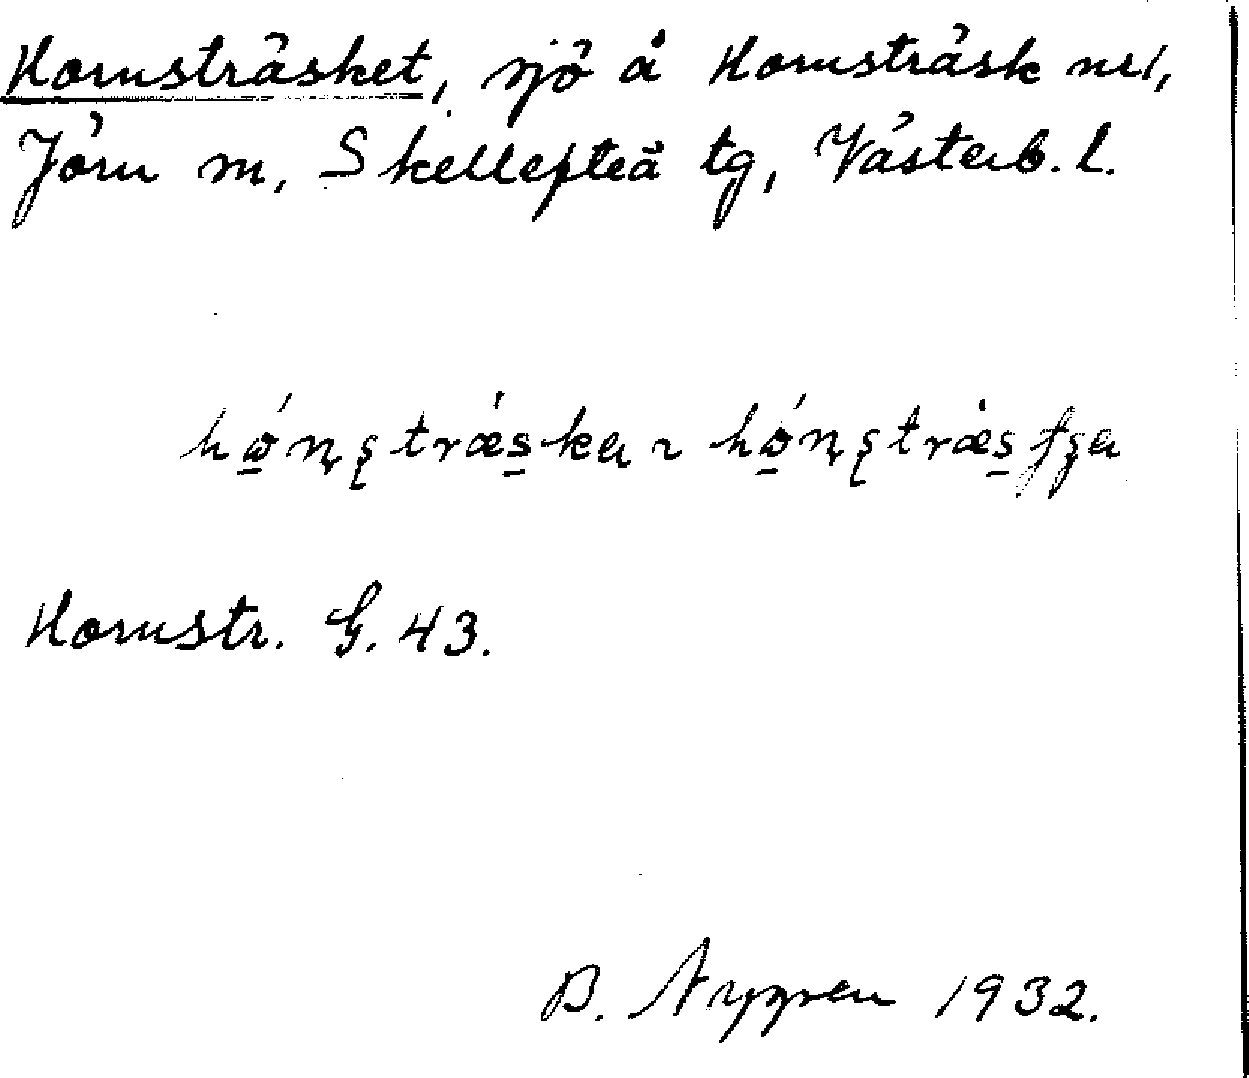 Hornsträsket, sjö å Hornsträsk nr 1,
Jörn sn, Skellefteå tg, Västerb. l.
hǫ́nştræ̀ska ~ hǫ́nştræ̀sʃʒa
Hornstr. G. 43.
B. Nygren 1932.